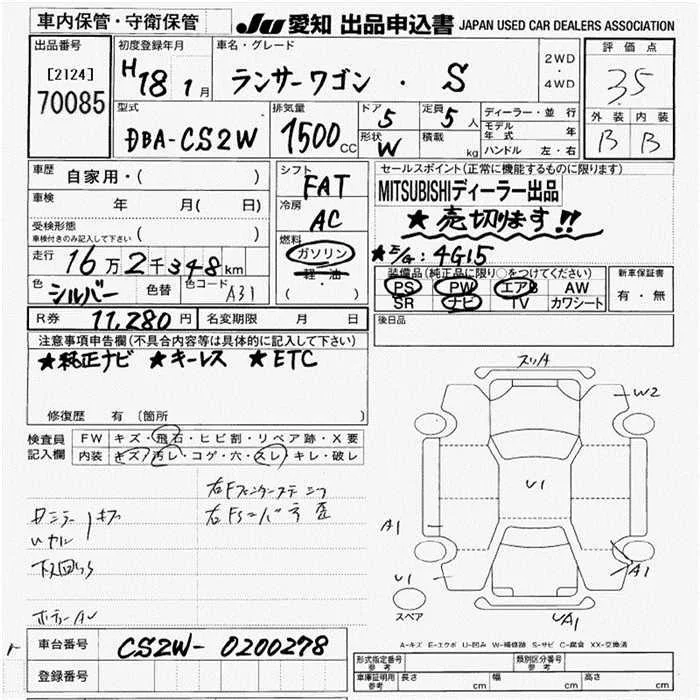 車内保管・守衛保管
JU 愛知 出品申込書 JAPAN USED CAR DEALERS ASSOCIATION
出品番号
[2124]
70085
初度登録年月
H18 1月
車名・グレード
ランサーワゴン ・ S
2WD
・
4WD
評価点
3.5
外装 内装
B B
型式
DBA-CS2W
排気量
1500cc
ドア 5
形状 W
定員 5人
積載 kg
ディーラー・並行
モデル年式 年
ハンドル 左・右
車歴 自家用・( )
車検 年 月( 日)
受検形態
車検付きのみ記入して下さい ( )
走行 16万2千348km
色 シルバー 色替 色コード A31
シフト FAT
冷房 AC
燃料
ガソリン
軽・油
( )
セールスポイント(正常に機能するものに限ります)
MITSUBISHIディーラー出品
★売切ります!!
★E/G: 4G15
装備品(純正品に限り○をつけてください)
PS PW エアB AW
SR ナビ TV カワシート
新車保証書
有・無
R券 11,280円 名変期限 月 日
後日品
注意事項申告欄(不具合内容等は具体的に記入して下さい)
★純正ナビ ★キーレス ★ETC
修復歴 有 (箇所 )
検査員記入欄
FW キズ・飛石・ヒビ割・リペア跡・X要
内装 キズ・汚レ・コゲ・穴・スレ・キレ・破レ
スリキ
W2
U1
A1
A1
U1
UA1
スペア
A-キズ E-エクボ U-凹み W-補修跡 S-サビ C-腐食 XX-交換済
車台番号 CS2W-0200278
登録番号
形式指定番号 参考
類別区分番号 参考
車庫証明用 参考 長さ cm 幅 cm 高さ cm